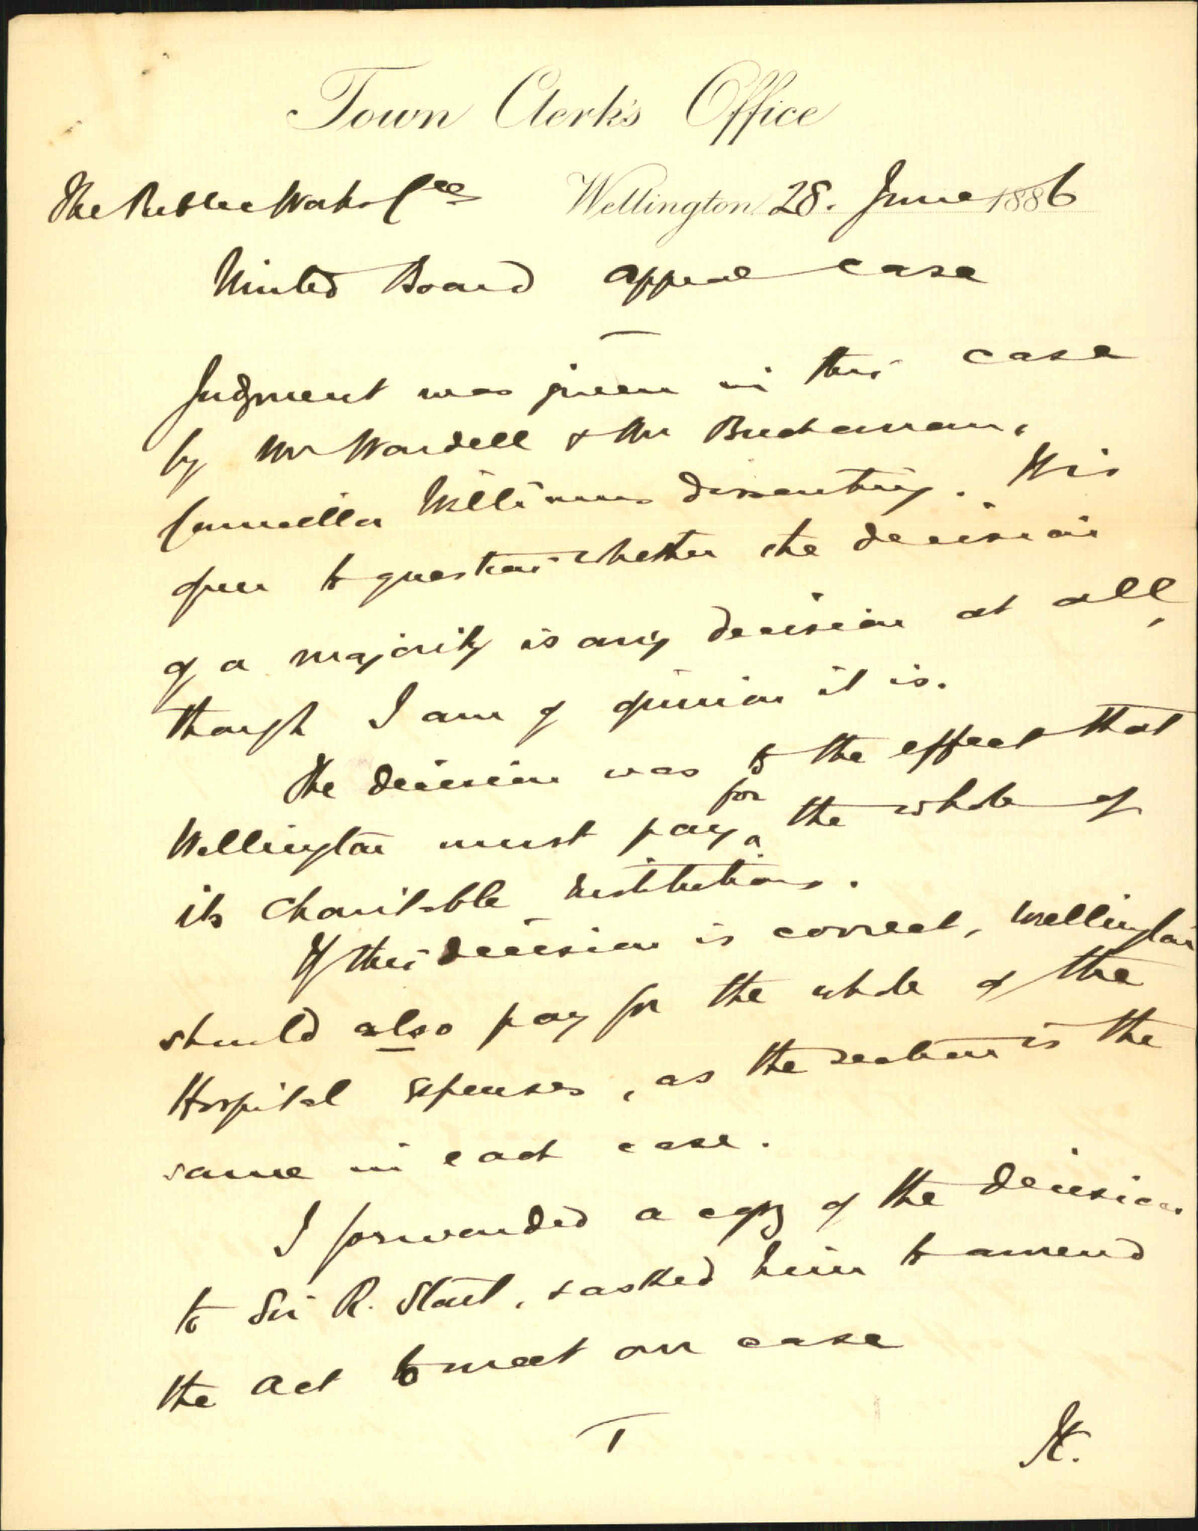 Town Clerk's Office
The Public Works Cee
Wellington 28. June 1886
United Board appeal case
Judgment was given in this case
by Mr Wardell & Mr Buchanan,
Councillor Williams dissenting. It is
open to question whether the decision
of a majority is any decision at all,
though I am of opinion it is.
The decision was to the effect that
for
Wellington must pay the whole of
its Charitable Institutions.
If this decision is correct, Wellington
should also pay for the whole of the
Hospital expenses, as the section is the
same in each case.
I forwarded a copy of the decision
to Sir R. Stout, & asked him to amend
the Act to meet our case